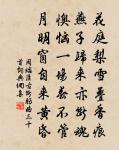 花庭梨雪墜香痕
燕子歸來亦斷魂
懊惱一場春不管
月明窗自來黃昏
周端臣古斷腸曲三十
首詞典網集